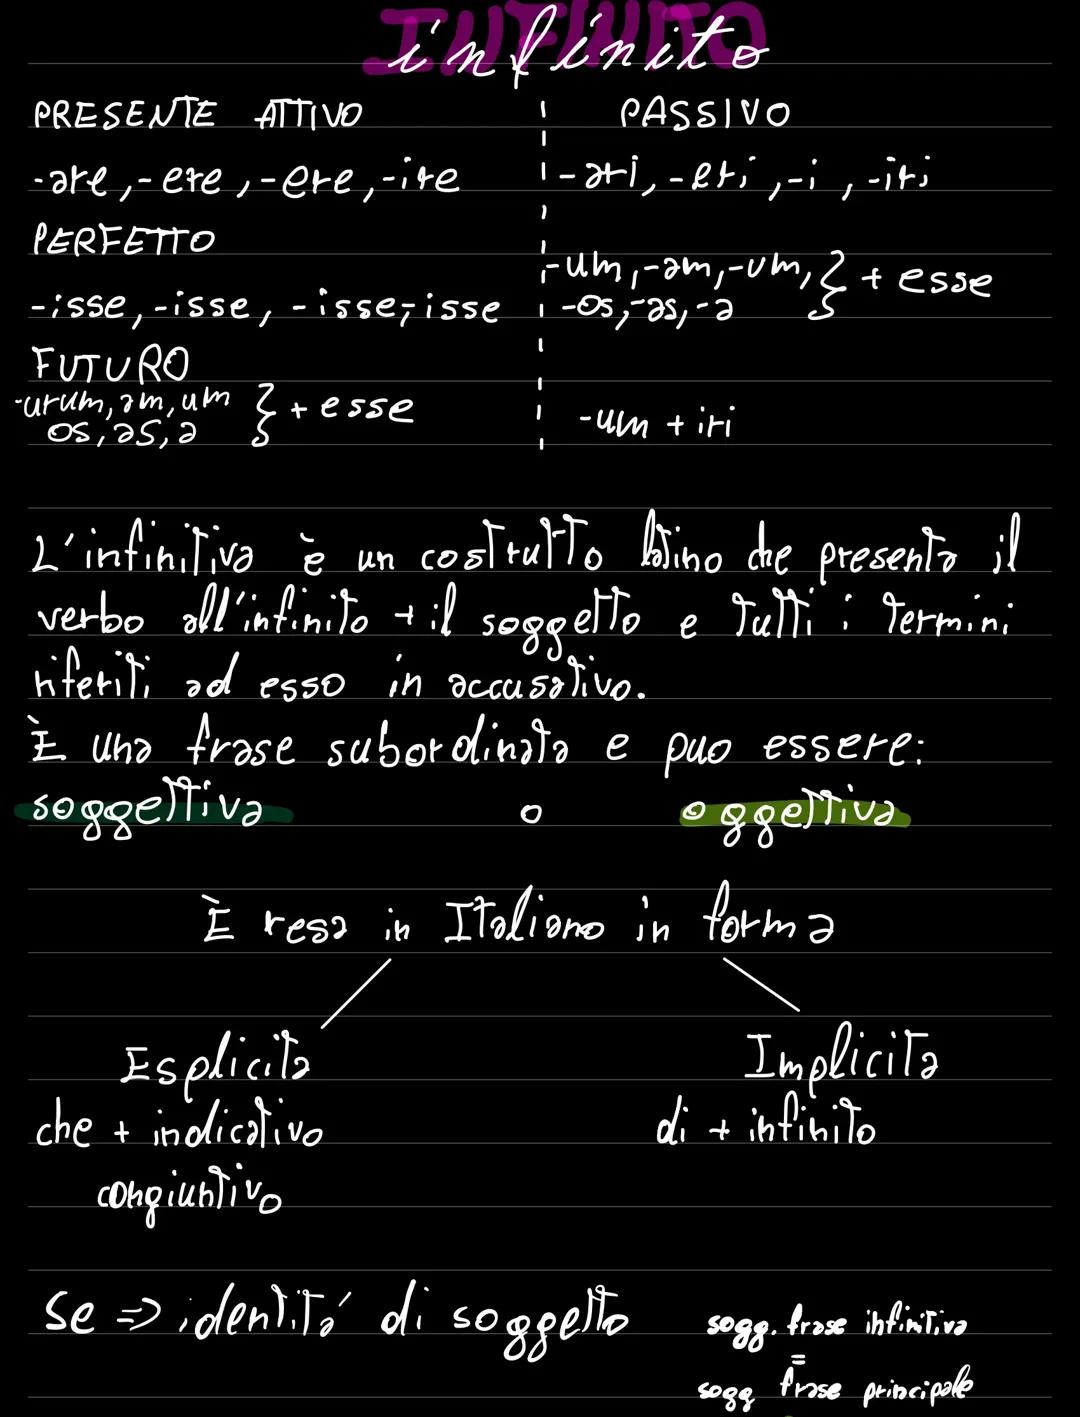 INFINITO
infinito
PRESENTE ATTIVO PASSIVO
-are, -ere, -ere, -ire -ari, -eri, -i, -iri
PERFETTO
-um, -am, -um, } + esse
-isse, -isse, -isse, -isse -os, -as, -a
FUTURO
-urum, am, um } + esse
os, as, a -um + iri
L'infinitiva è un costrutto latino che presenta il
verbo all'infinito + il soggetto e tutti i termini
riferiti ad esso in accusativo.
È una frase subordinata e puo essere:
soggettiva o oggettiva
È resa in Italiano in forma
Esplicita Implicita
che + indicativo di + infinito
congiuntivo
Se => identitá di soggetto sogg. frase infinitiva
=
sogg frase principale